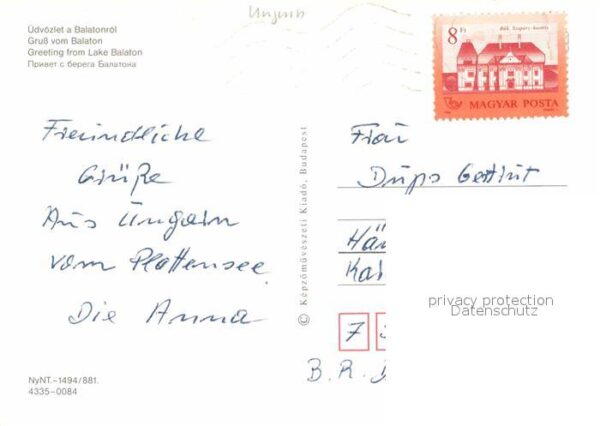 Ungarn
Üdvözlet a Balatonról
Gruß vom Balaton
Greeting from Lake Balaton
Привет с берега Балатона
8 Ft
MAGYAR POSTA
Freundliche
Grüße
Aus Ungarn
vom Plattensee
Die Anna
© Képzőművészeti Kiadó, Budapest
Frau
Hän
7
B. R. D
privacy protection
Datenschutz
NyNT.–1494/881.
4335-0084